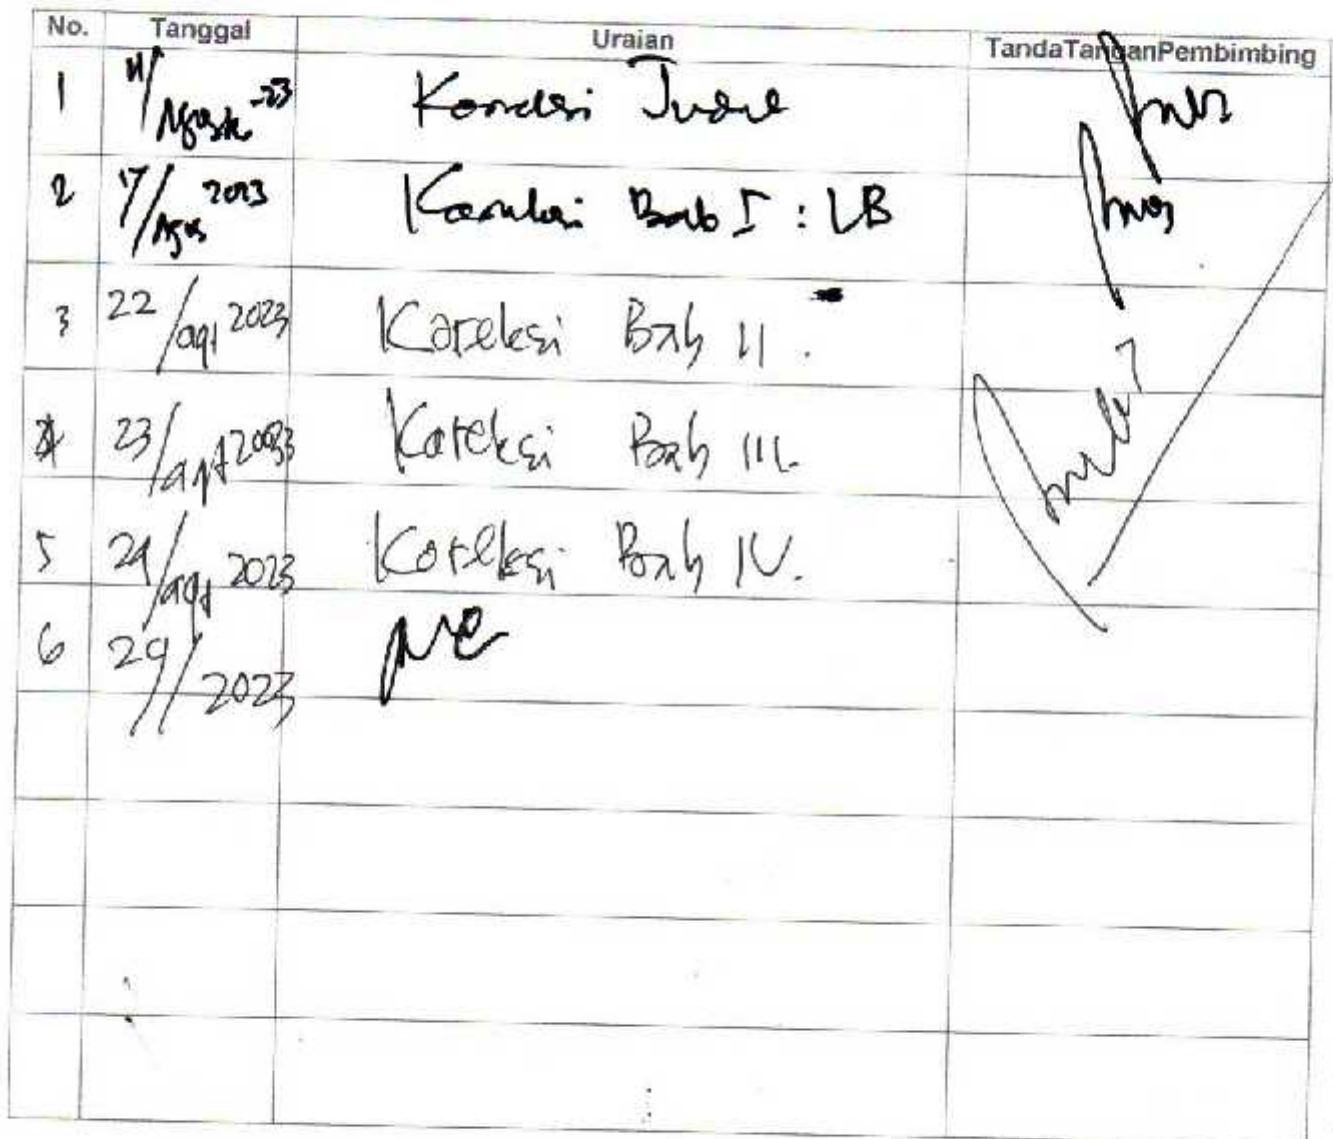 No. Tanggal Uraian TandaTanganPembimbing
1 11/Agust-23 Koreksi Judul
2 17/Agus 2023 Koreksi Bab I : LB
3 22/agt 2023 Koreksi Bab II.
4 23/agt 2023 Koreksi Bab III.
5 29/agt 2023 Koreksi Bab IV.
6 29/ 2023